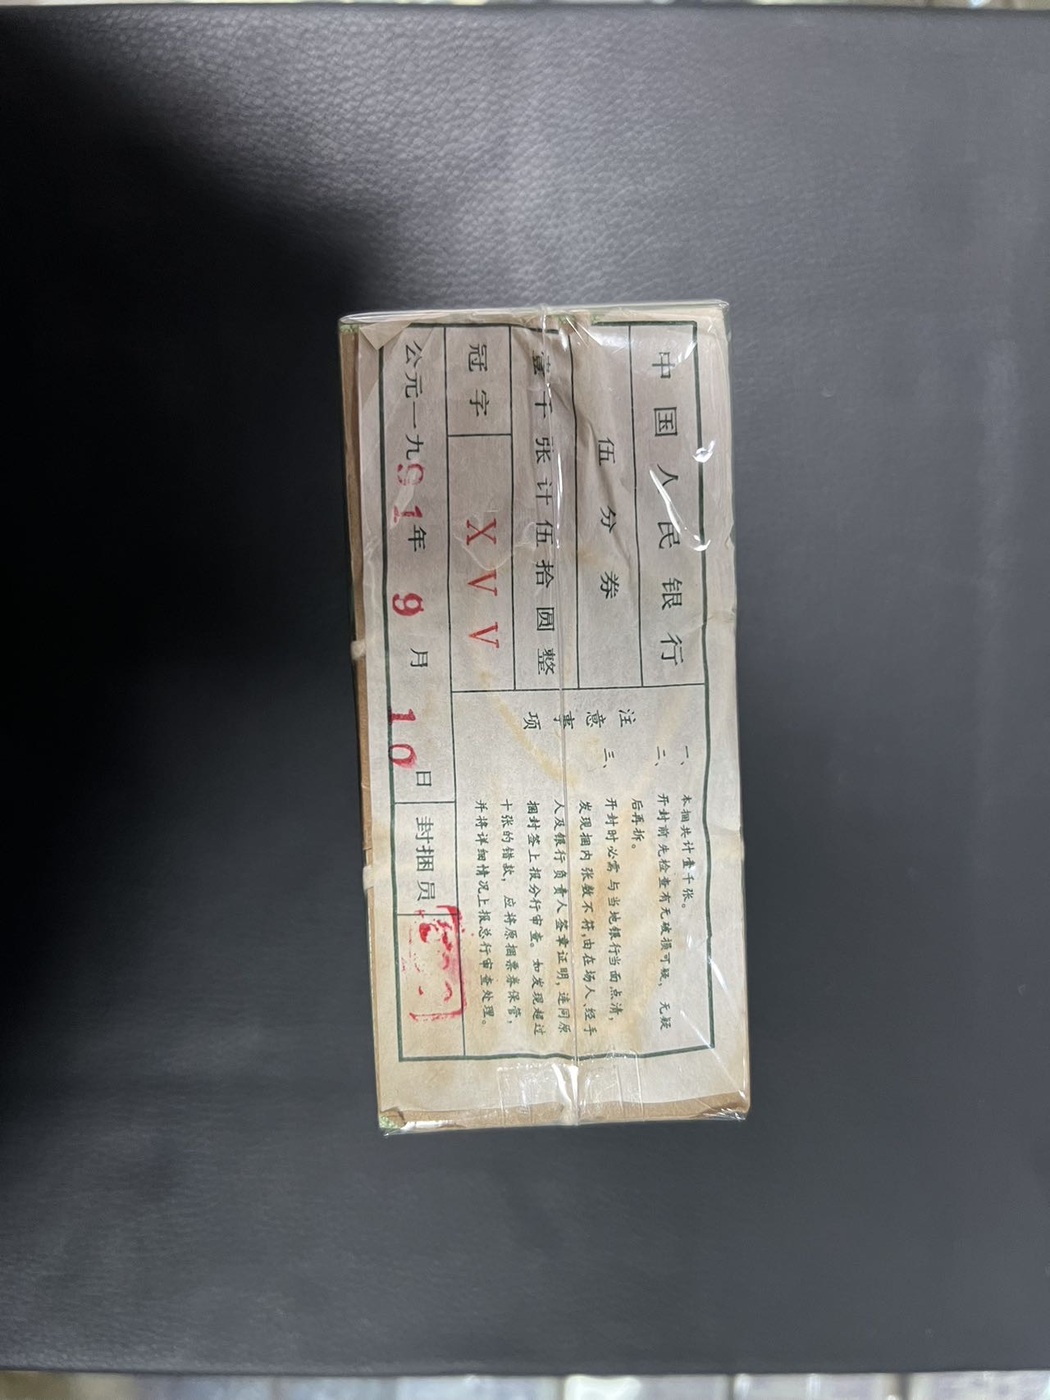 中国人民银行
伍分券
壹千张计伍拾圆整
冠字 XVV
注意事项
一、本捆共计壹千张。
二、开封前先检查有无破损可疑，无疑
后再拆。
三、开封时必需与当地银行当面点清，
发现捆内张数不符，由在场人、经手
人及银行负责人签章证明，连同原
捆封签上报分行审查。如发现超过
十张的错款，应将原捆票券保管，
并将详细情况上报总行审查处理。
公元一九91年9月10日 封捆员